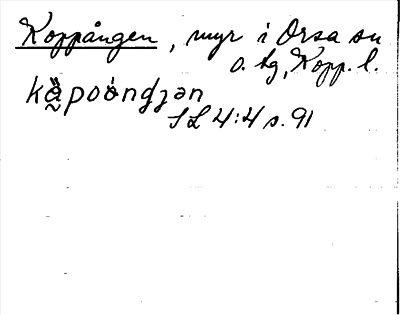 Koppången, myr i Orsa sn
o. hg, Kopp. l.
kä̰poȯndʒən
SL 4:4 s. 91